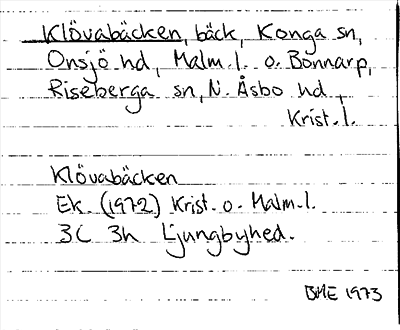 Klövabäcken, bäck, Konga sn,
Onsjö hd, Malm.l. o. Bonnarp,
Riseberga sn, N. Åsbo hd,
Krist.l.
Klövabäcken
Ek. (1972) Krist. o. Malm.l.
3C 3h Ljungbyhed.
BME 1973